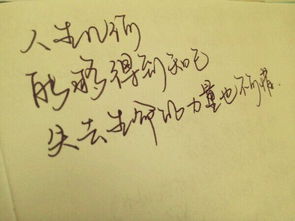 人生几何
能够得到知己
失去生命的力量也不可惜